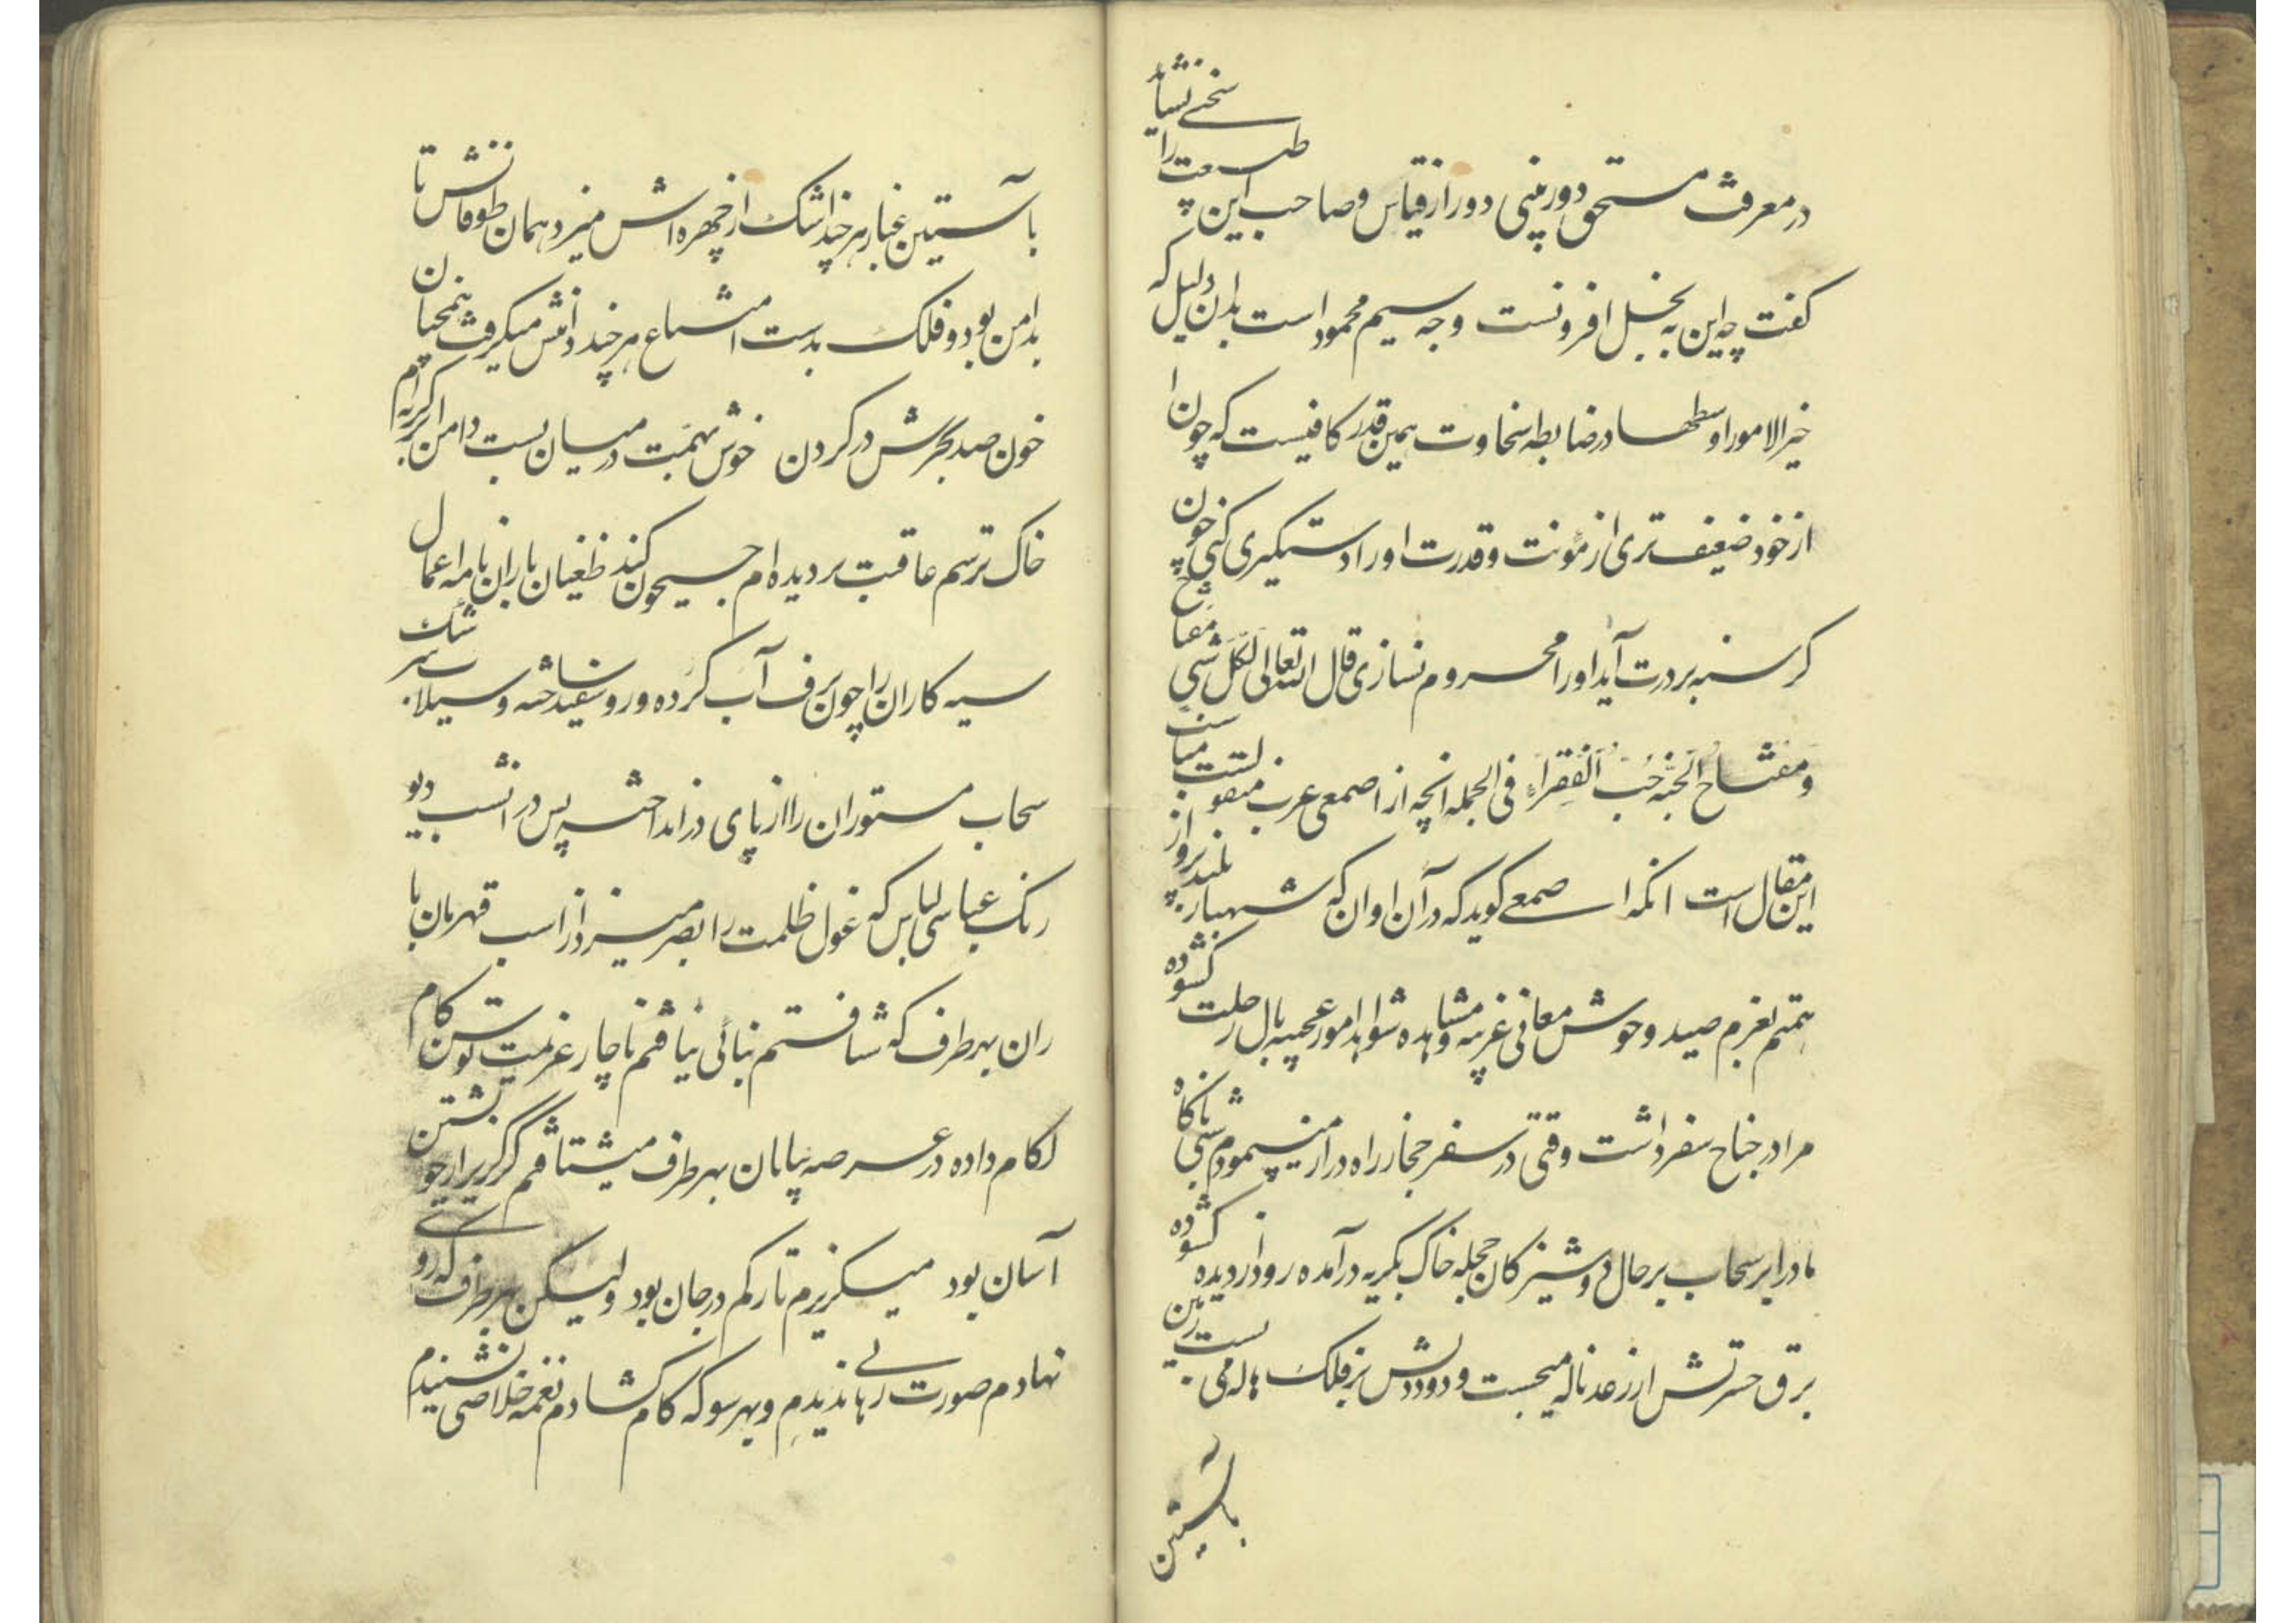 در معرفت مستحق دور بینی دور از قیاس و صاحب این طبیعت را سخی نشا
گفت چه این به بخل افزونست وجه سیم محمود است بدان دلیل که
خیر الامور اوسطها در ضابطه سخاوت همین قدر کافیست که چون
از خود ضعیف تری از مؤنت و قدرت او را دستگیری کنی چون
گرسنه بر درت آید او را محروم نسازی قال الله تعالی لکل شی مفتاح
و مفتاح الجنه حب الفقراء فی الجمله انچه از اصمعی عرب منقولست مناسب
این مقال است انکه اصمعی گوید که در آن اوان که شهباز بلند پرواز
همتم بعزم صید وحوش معانی غریبه و مشاهده شواهد امور عجیبه بال رحلت گشوده
مرا در جناح سفر داشت وقتی در سفر حجاز راه دراز میپیمودم شبی ناگاه
مادر ابر سحاب بر حال دوشیزگان حجله خاک بگریه درآمده رود از دیده گشوده
برق حسرتش از رعد ناله میجست و دود دلش بر فلک هاله می بست زمین
باستین
باستین غبار هر چند اشک از چهره اش میزد همان طوفانش تا
بدامن بود و فلک بدست شعاع هر چند دامنش میگرفت همچنان
خون صد بحرش در کردن خوش بهمت در میان بست دامن ابر گریه ام
خاک ترسم عاقبت بر دیده ام جیحون کند طغیان باران نامه اعمال
سیه کاران را چون برف آب کرده و رو سفید ساخته و سیلاب سرشک
سحاب مستوران را از پای در انداخته پس در انشب دیو
رنگ عباسی لباس که غول ظلمت را بصر میزد از اسب قهرمان با
ران بهر طرف که شتافتم بنائی نیافتم ناچار عزیمت توسن کام
لکام داده در عرصه بیابان بهر طرف میشتافتم گر گریز از خویشتن
آسان بود میگریزم تا رگم در جان بود ولیکن بهر طرف که روی
نهادم صورت رهائی ندیدم و بهر سو که کام گشادم نغمه خلاصی نشنیدم